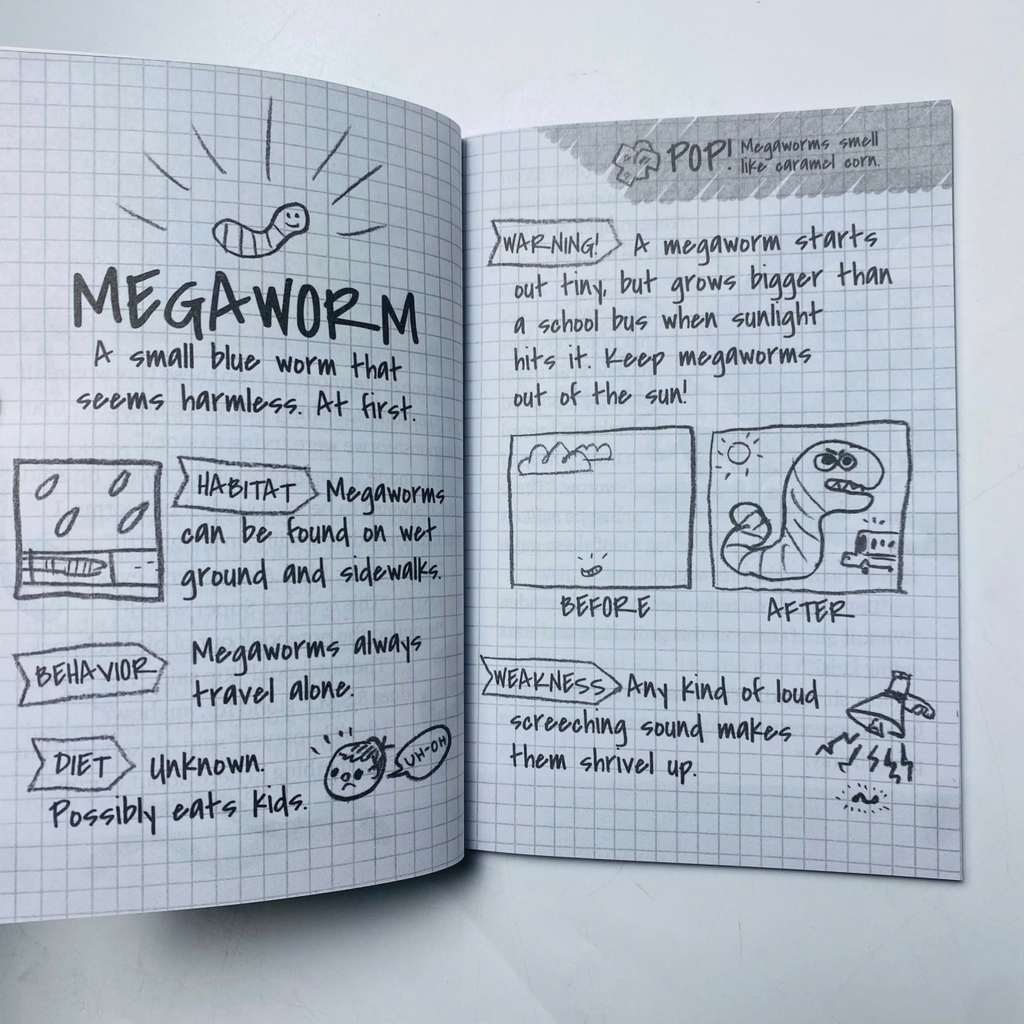 MEGAWORM
A small blue worm that
seems harmless. At first.
HABITAT Megaworms
can be found on wet
ground and sidewalks.
BEHAVIOR Megaworms always
travel alone.
DIET Unknown.
Possibly eats kids.
UH-OH
POP! Megaworms smell
like caramel corn.
WARNING! A megaworm starts
out tiny, but grows bigger than
a school bus when sunlight
hits it. Keep megaworms
out of the sun!
BEFORE
AFTER
WEAKNESS Any kind of loud
screeching sound makes
them shrivel up.